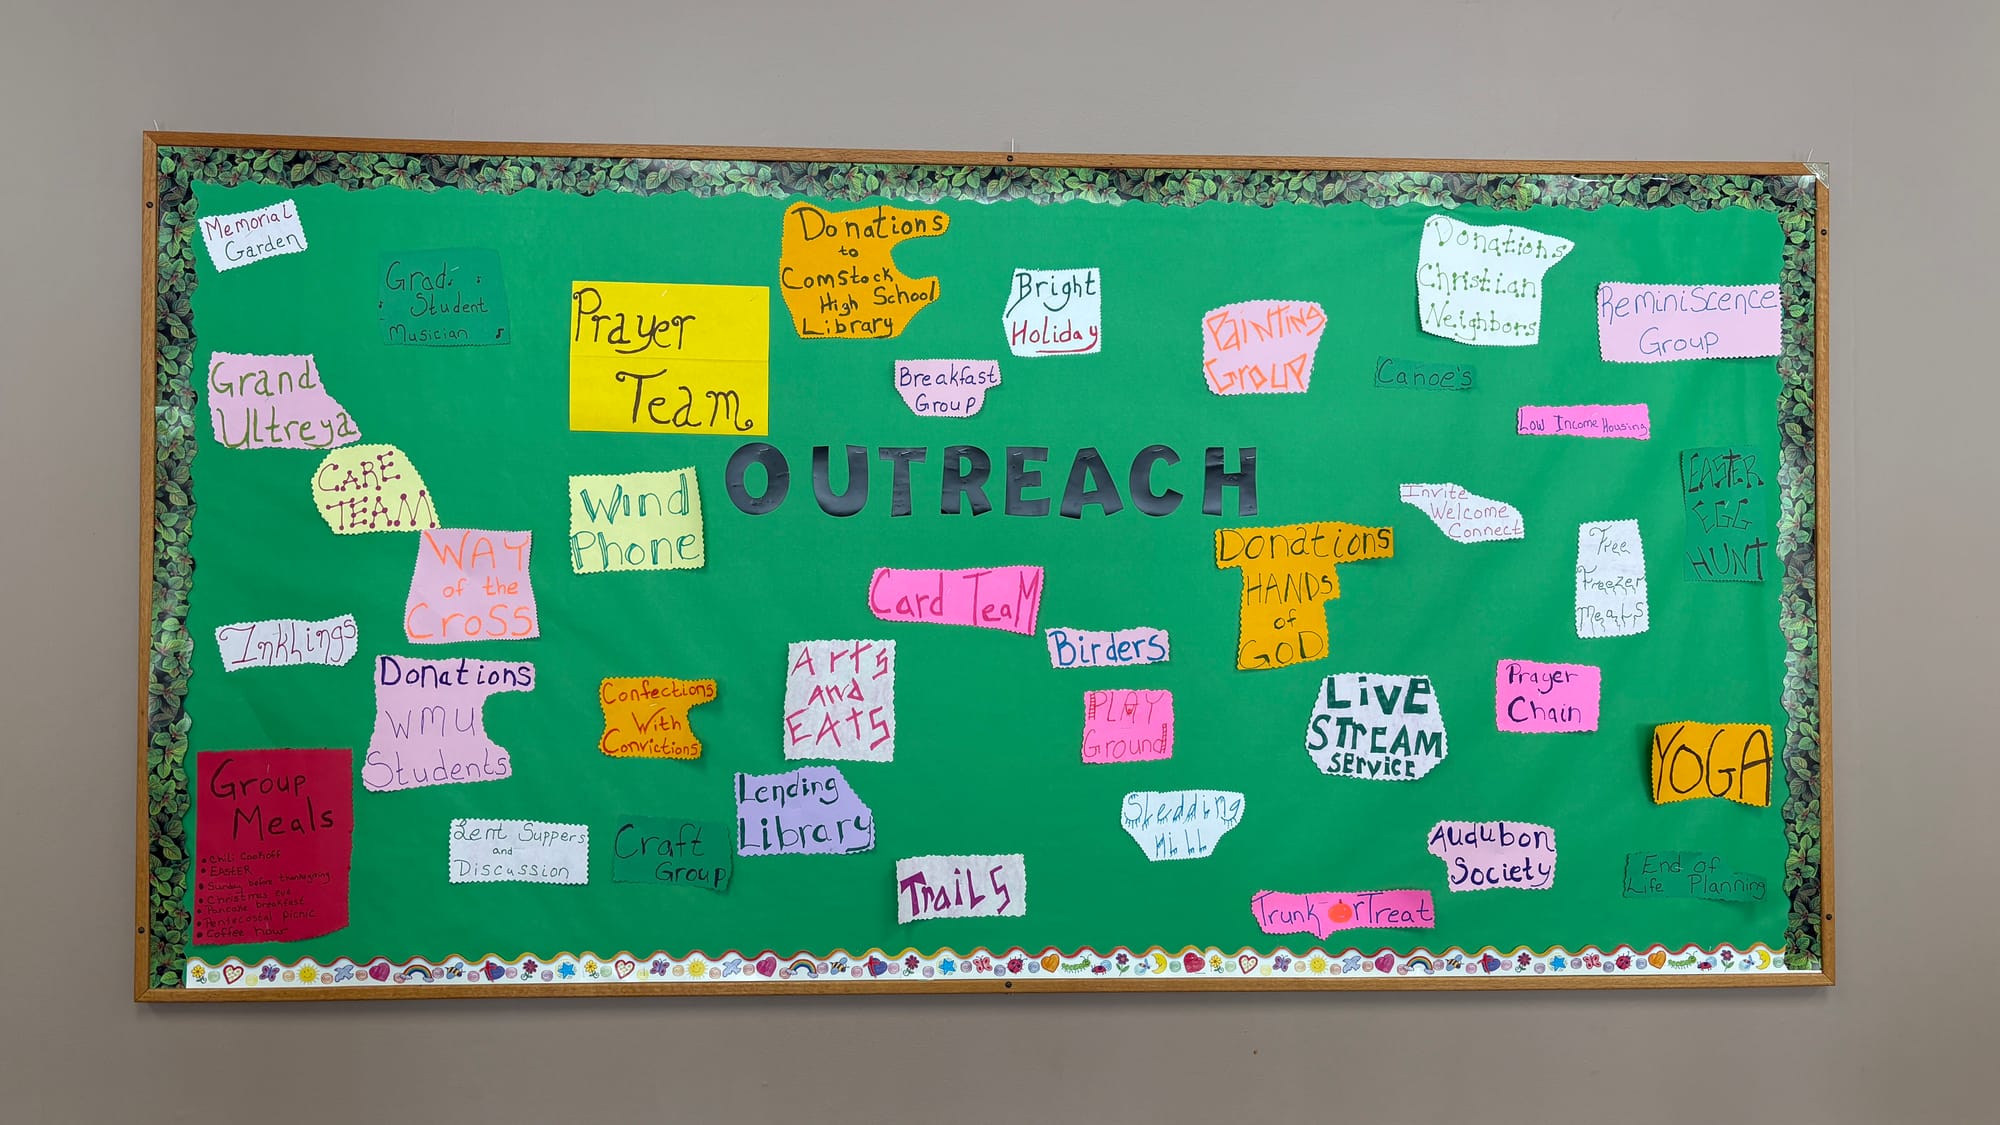 Memorial
Garden
Grad.
Student
Musician
Prayer
Team
Donations
to
Comstock
High School
Library
Bright
Holiday
Painting
Group
Donations
Christian
Neighbors
Reminiscence
Group
Grand
Ultreya
Breakfast
Group
Canoe's
Low Income Housing
CARE
TEAM
Wind
Phone
OUTREACH
Invite
Welcome
Connect
EASTER
EGG
HUNT
WAY
of the
CroSS
Card TeaM
Donations
HANDs
of
GOD
Free
Freezer
Meals
Inklings
Birders
Donations
WMU
Students
Confections
With
Convictions
Arts
AND
EATS
PLAY
Ground
LivE
STrEAM
SERVICE
Prayer
Chain
YOGA
Group
Meals
• Chili Cookoff
• EASTER
• Sunday before thanksgiving
• Christmas Eve
• Pancake breakfast
• Pentecostal picnic
• Coffee hour
Lent Suppers
and
Discussion
Craft
Group
Lending
Library
Trails
Sledding
Hill
Audubon
Society
End of
Life Planning
Trunk-OrTreat